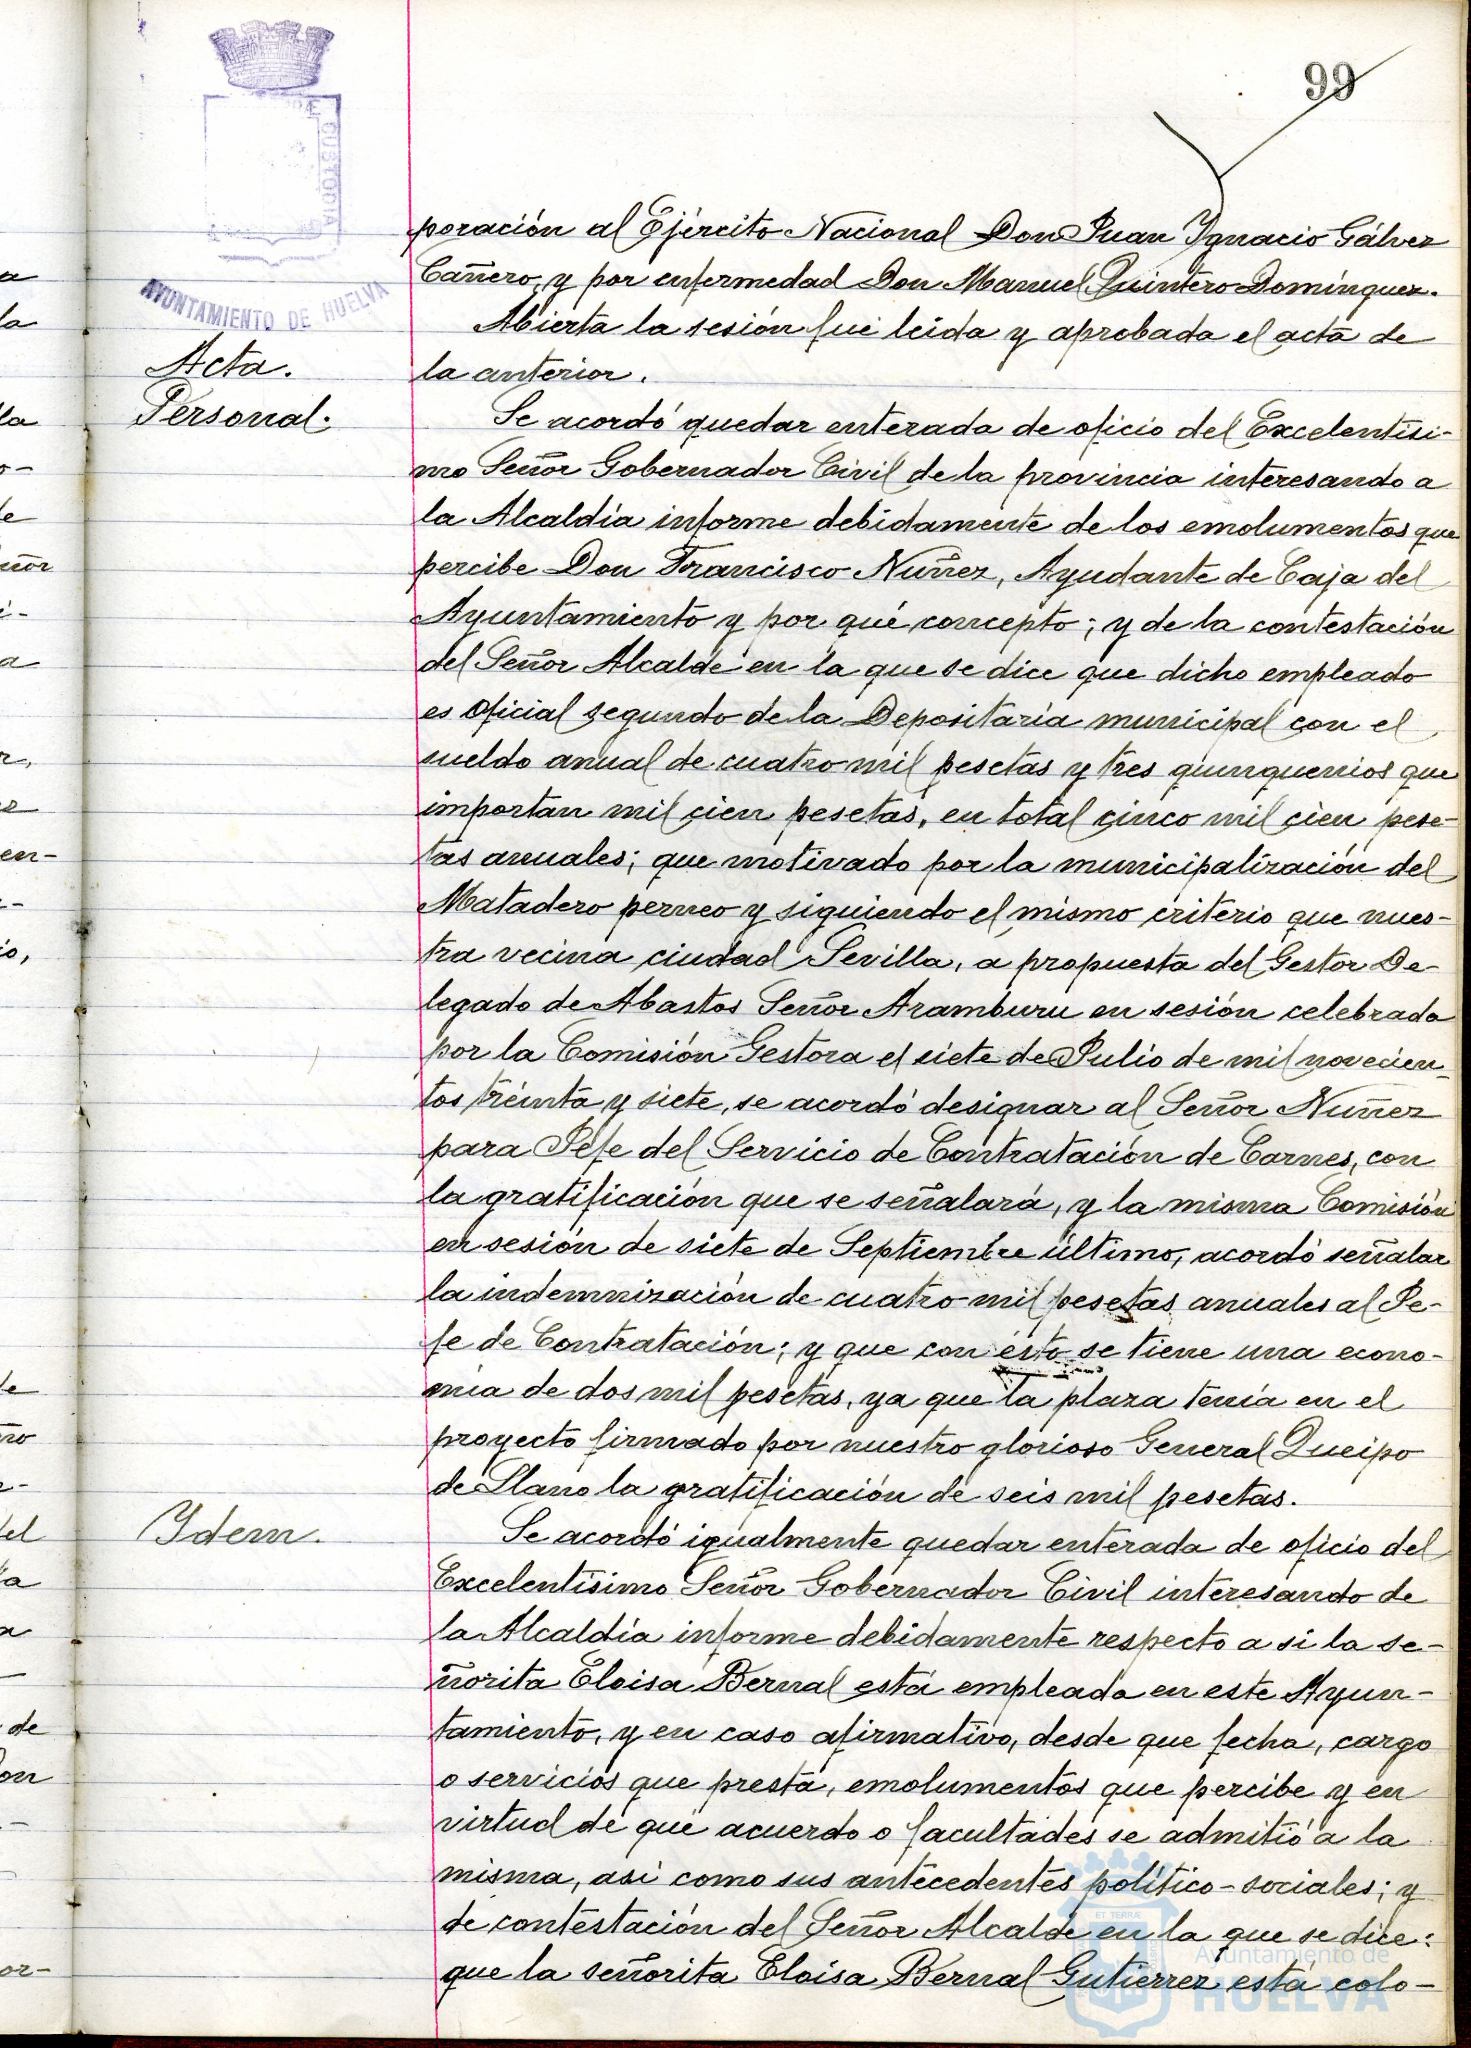 99
poración al Ejército Nacional Don Juan Ygnacio Gálvez
Cañero, y por enfermedad Don Manuel Quintero Domínguez.
Abierta la sesión fué leida y aprobada el acta de
la anterior.
CUSTODIA
AYUNTAMIENTO DE HUELVA
Acta.
Personal.
Se acordó quedar enterada de oficio del Excelentísi-
mo Señor Gobernador Civil de la provincia interesando a
la Alcaldía informe debidamente de los emolumentos que
percibe Don Francisco Nuñez, Ayudante de Caja del
Ayuntamiento y por qué concepto; y de la contestación
del Señor Alcalde en la que se dice que dicho empleado
es oficial segundo de la Depositaría municipal con el
sueldo anual de cuatro mil pesetas y tres quinquenios que
importan mil cien pesetas, en total cinco mil cien pese-
tas anuales; que motivado por la municipalización del
Matadero perneo y siguiendo el mismo criterio que nues-
tra vecina ciudad Sevilla, a propuesta del Gestor De-
legado de Abastos Señor Aramburu en sesión celebrada
por la Comisión Gestora el siete de Julio de mil novecien-
tos treinta y siete, se acordó designar al Señor Nuñez
para Jefe del Servicio de Contratación de Carnes, con
la gratificación que se señalará, y la misma Comisión
en sesión de siete de Septiembre último, acordó señalar
la indemnización de cuatro mil pesetas anuales al Je-
fe de Contratación; y que con ésto se tiene una econo-
mía de dos mil pesetas, ya que la plaza tenía en el
proyecto firmado por nuestro glorioso General Queipo
de Llano la gratificación de seis mil pesetas.
Ydem.
Se acordó igualmente quedar enterada de oficio del
Excelentísimo Señor Gobernador Civil interesando de
la Alcaldía informe debidamente respecto a si la se-
ñorita Eloisa Bernal está empleada en este Ayun-
tamiento, y en caso afirmativo, desde que fecha, cargo
o servicios que presta, emolumentos que percibe y en
virtud de qué acuerdo o facultades se admitió a la
misma, así como sus antecedentes político-sociales; y
de contestación del Señor Alcalde en la que se dice:
que la señorita Eloisa Bernal Gutierrez está colo-
ET TERRÆ
Ayuntamiento de
HUELVA